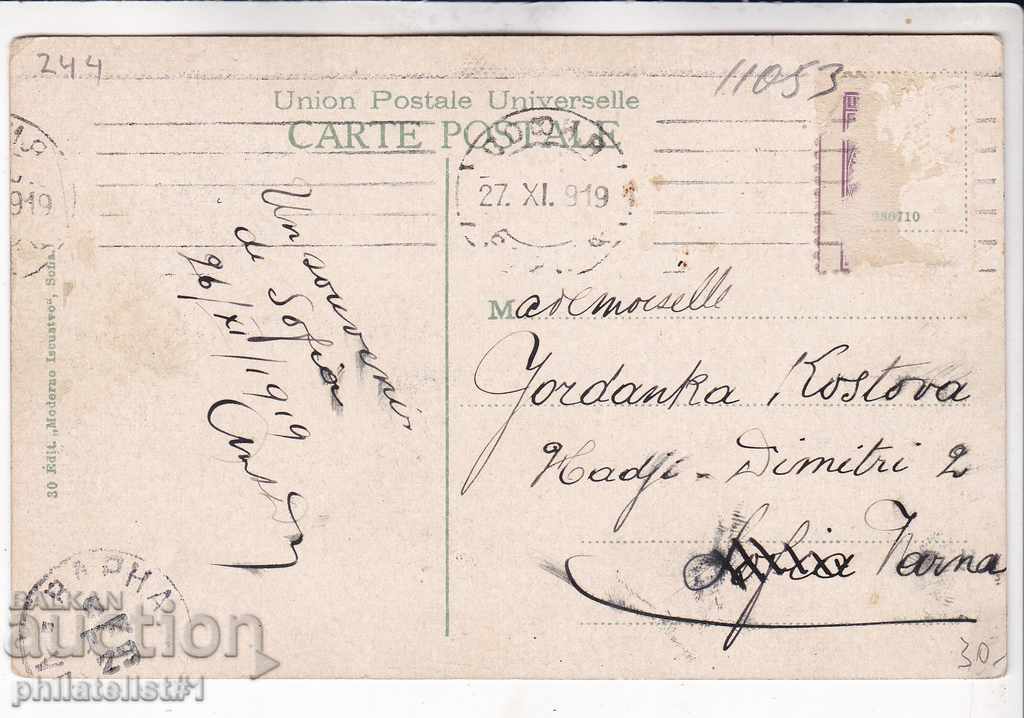 244
11053
Union Postale Universelle
CARTE POSTALE
СОФИЯ
27. XI. 919
919
280710
Un souvenir
de Sofia
26/XI/1919
Mademoiselle
Jordanka Kostova
Hadji-Dimitri 2
Sofia Varna
30 Édit. „Moderno Iscustvo", Sofia.
ВАРНА
BALKAN
auction
philatelist#1
30.-